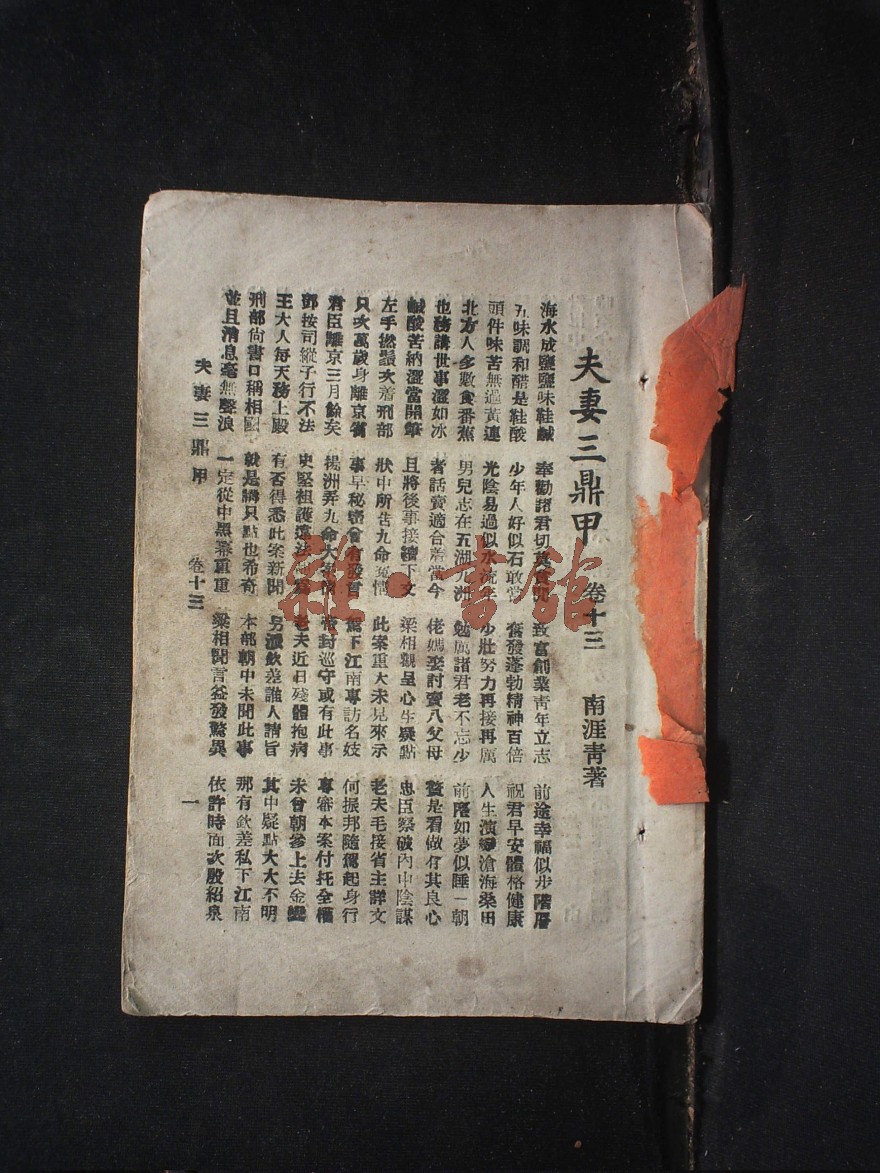 夫妻三鼎甲 卷十三 南涯青著
海水成鹽鹽味鞋鹹 奉勸諸君切莫 致富創業靑年立志 前途幸福似步階層
五味調和醋是鞋酸 少年人好似石敢當 奮發蓬勃精神百倍 祝君早安體格健康
頭件味苦無過黃連 光陰易過似水流年 少壯努力再接再厲 人生演變滄海桑田
北方人多數食番蕉 男兒志在五湖九洲 勉勵諸君老不忘少 前陸如夢似睡一朝
也務講世事澀如冰 者話實適合當今 佬媽娶討賣八父母 是看做有其良心
鹹酸苦納澀當開筆 且將後事接續下文 梁相觀呈心生疑點 忠臣察破內中陰謀
左手撚鬚次看刑部 狀中所告九命冤情 此案重大未見來示 老夫毛接省主詳文
只次萬歲身離京省 事早秘密會有發言 駕下江南專訪名妓 何振邦隨駕起身行
君臣離京三月餘矣 揚洲弄九命大 封巡守或有此事 專審本案付托全權
鄧按司縱子行不法 史堅祖護違法 老夫近日殘體抱病 未曾朝參上去金鑾
王大人每天務上殿 有否得悉此案新聞 另派欽差誰人請旨 其中疑點大大不明
刑部尙書口稱相國 就是將只點也希奇 本部朝中未聞此事 那有欽差私下江南
並且消息毫無聲浪 一定從中黑幕重重 梁相聞言益發驚異 依許時面次殷紹泉
夫妻三鼎甲 卷十三 一
雜·書館